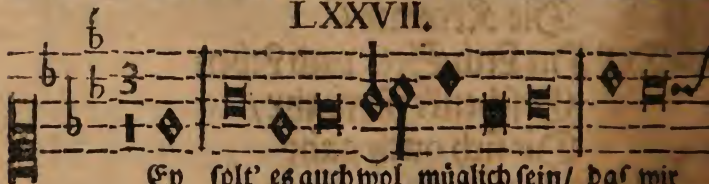 LXXVII.
Ey solt' es auch wol müglich sein/ das mir